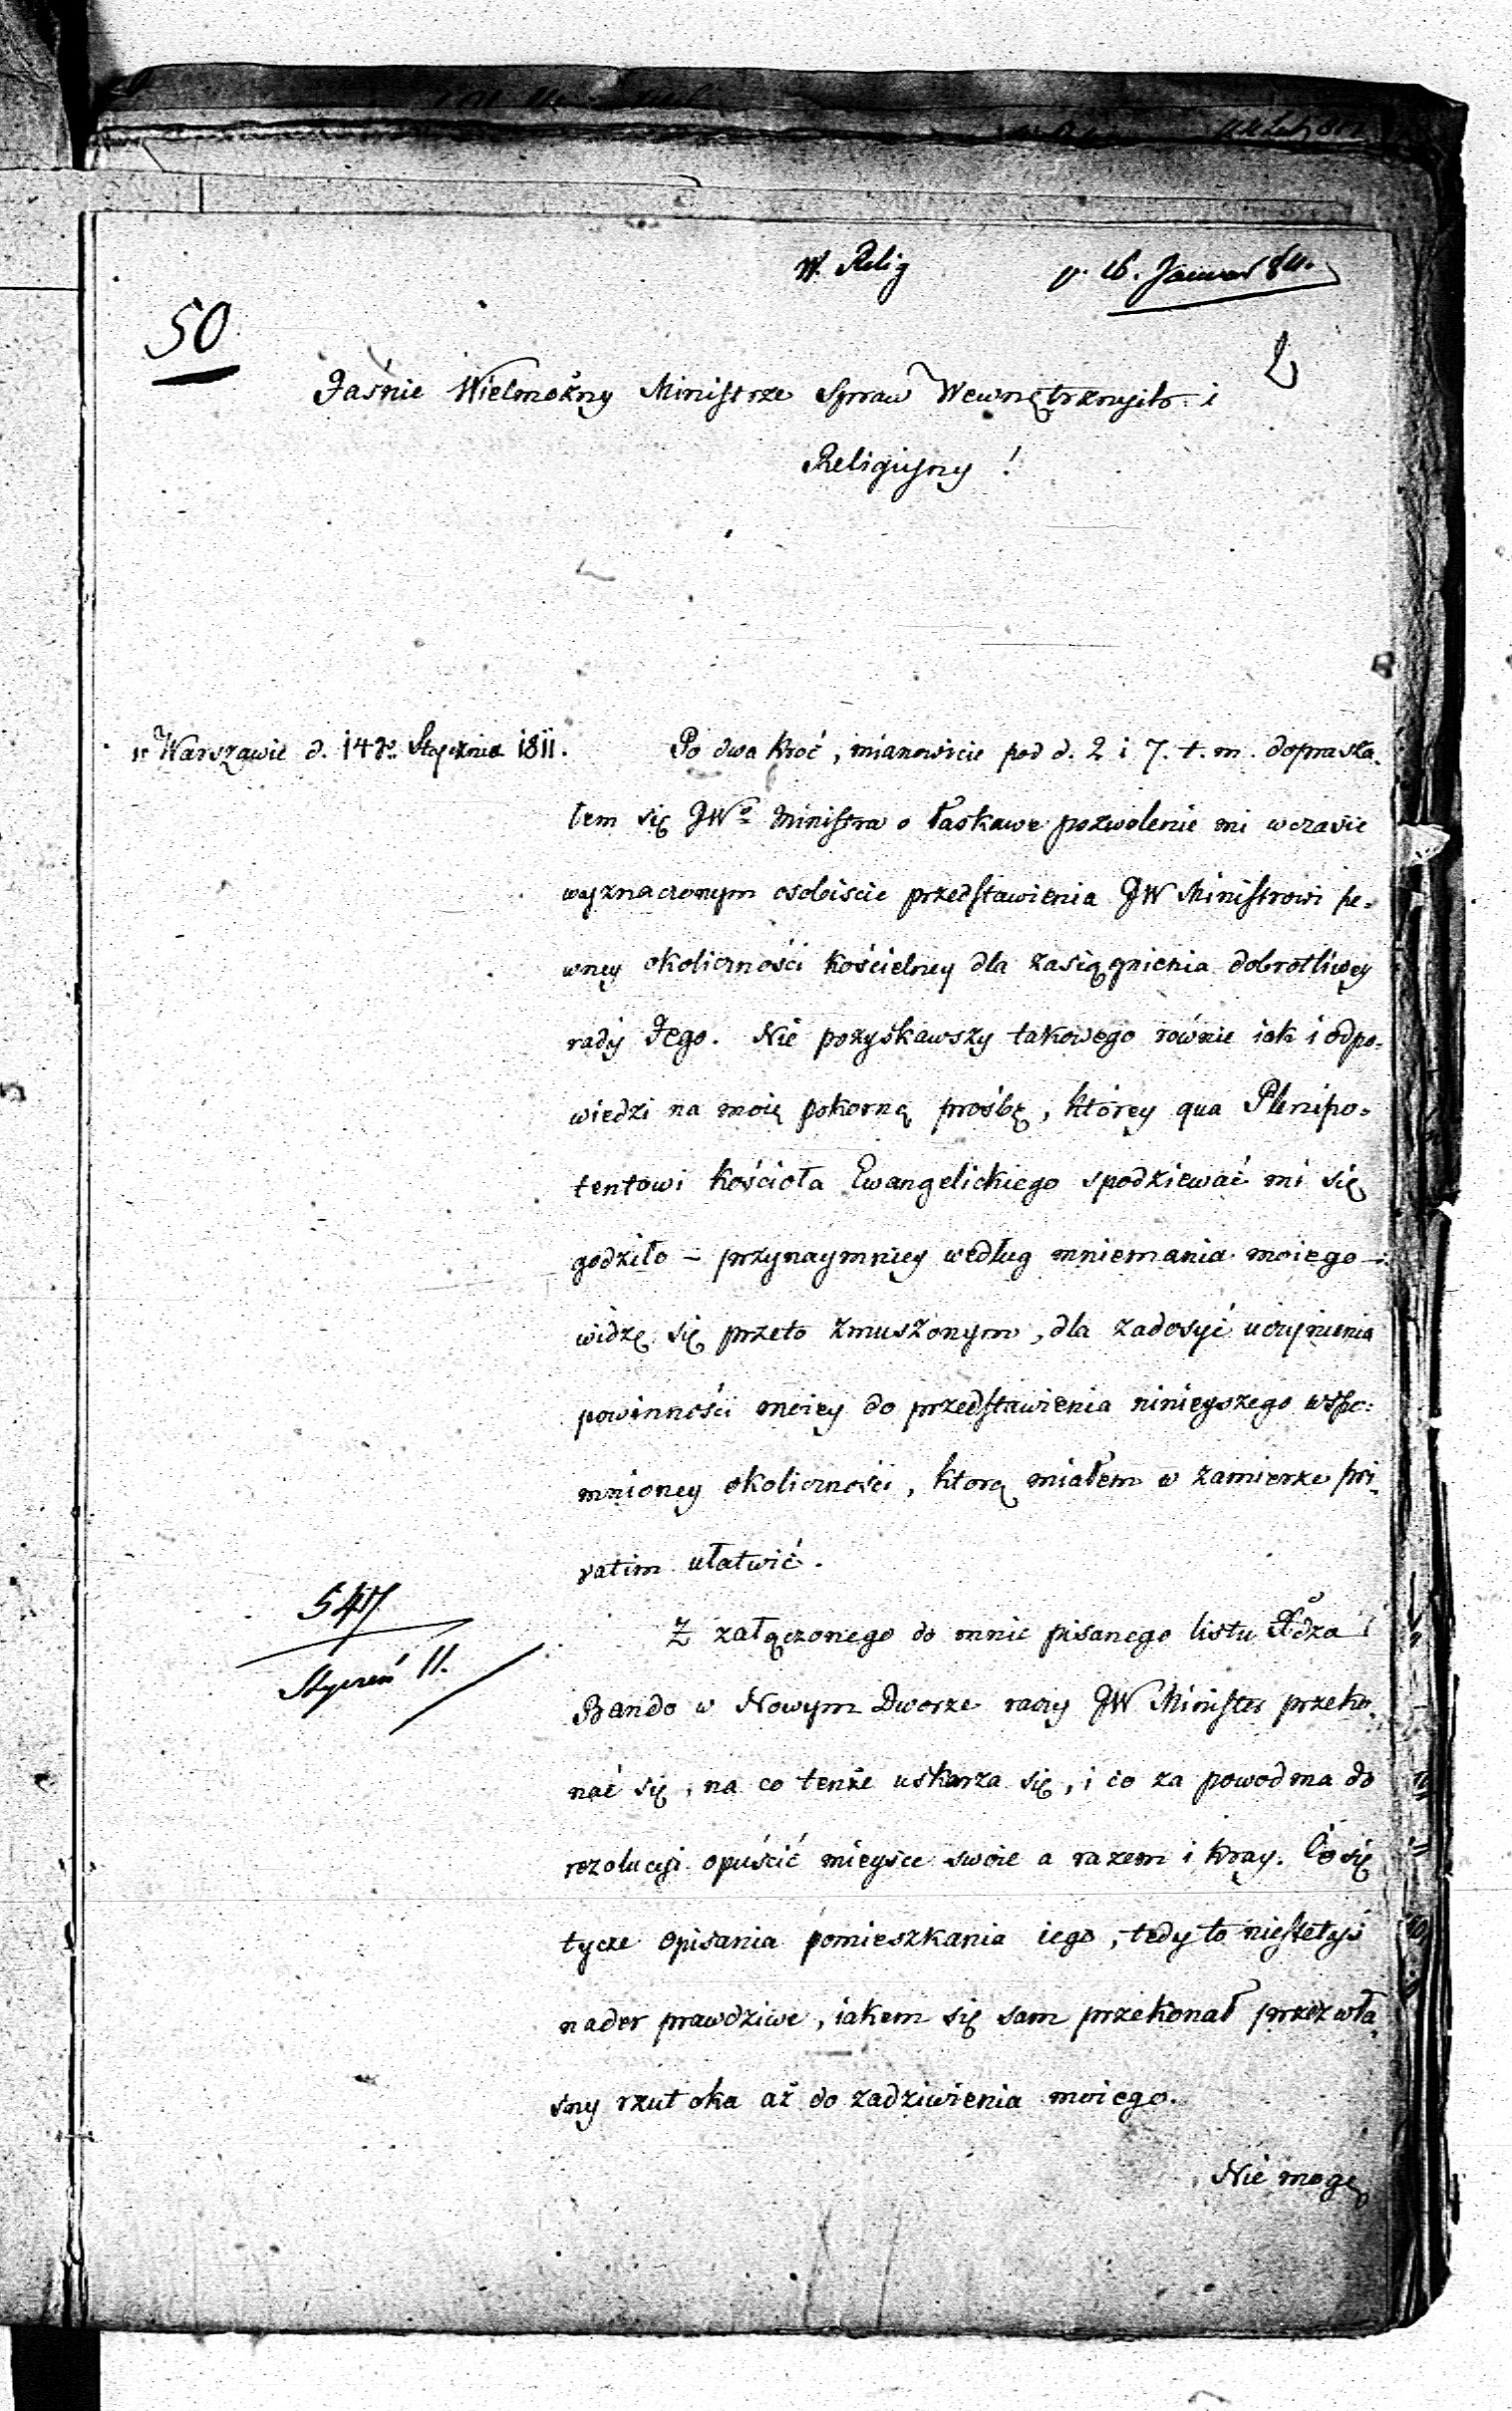 W. Relig
v. 16. Januar 811.
50
Jaśnie Wielmożny Ministrze Spraw Wewnętrznych i
Religijny !
w Warszawie d. 14go Stycznia 1811.
Po dwa kroć, mianowicie pod d. 2 i 7. t. m. doprasza-
łem się JWo Ministra o łaskawe pozwolenie mi w czasie
wyznaczonym osobiscie przedstawienia JW Ministrowi pe-
wnęy okoliczności kościelney dla zasiągnienia dobrotliwęy
rady Jego. Nie pozyskawszy takowego równie iak i odpo-
wiedzi na moię pokorną prośbę, którey qua Plenipo-
tentowi kościoła Ewangelickiego spodziewać mi się
godziło – przynaymniey według mniemania moiego –
widzę się przeto zmuszonym, dla zadosyć uczynienia
powinności moiey do przedstawienia ninieyszego wspo-
mnioney okoliczności, którą miałem w zamierze pri-
vatim ułatwić.
547
Styczeń 11.
Z załączonego do mnie pisanego listu Xdza
Bando w Nowym Dworze raczy JW Minister przeko-
nać się, na co tenże uskarza się, i co za powod ma do
rezolucyi opuścić mieysce swoie a razem i kray. Co się
tycze opisania pomieszkania iego, tedy to niestetyś
nader prawdziwe, iakem się sam przekonał przez wła-
sny rzut oka aż do zadziwienia moiego.
Nie mogę